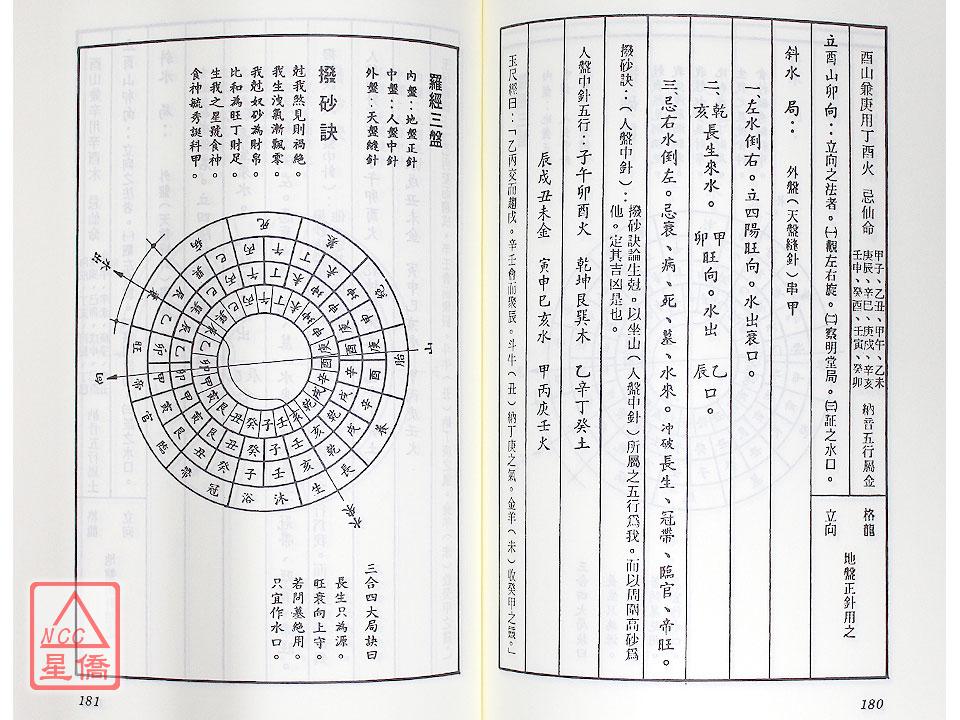 酉山兼庚用丁酉火　忌仙命
甲子、乙丑、甲午、乙未
庚辰、辛巳、庚戌、辛亥
壬申、癸酉、壬寅、癸卯
納音五行屬金
格龍
立向
地盤正針用之
立酉山卯向：立向之法者。㈠觀左右旋。㈡察明堂局。㈢証之水口。
斜水　局：　外盤（天盤縫針）串甲
一、左水倒右。立四陽旺向。水出衰口。
二、乾亥長生來水。甲卯旺向。水出乙辰口。
三、忌右水倒左。忌衰、病、死、墓、水來。冲破長生、冠帶、臨官、帝旺。
撥砂訣：（人盤中針）：撥砂訣論生尅。以坐山（人盤中針）所屬之五行爲我。而以周圍高砂爲
他。定其吉凶是也。
人盤中針五行：子午卯酉火　乾坤艮巽木　乙辛丁癸土
辰戌丑未金　寅申巳亥水　甲丙庚壬火
玉尺經曰：「乙丙交而趨戌。辛壬會而聚辰。斗牛（丑）納丁庚之氣。金羊（未）收癸甲之靈。」
180
羅經三盤
內盤：地盤正針
中盤：人盤中針
外盤：天盤縫針
撥砂訣
尅我煞見則禍絶。
我生洩氣漸飄零。
我尅奴砂為財帛。
比和為旺丁財足。
生我之星號食神。
食神毓秀誕科甲。
三合四大局訣曰
長生只為源。
旺衰向上守。
若問墓絶用。
只宜作水口。
181
水出
水來
向
山
長
生
沐
浴
冠
帶
臨
官
帝
旺
衰
病
死
墓
絶
胎
養
NCC
星僑